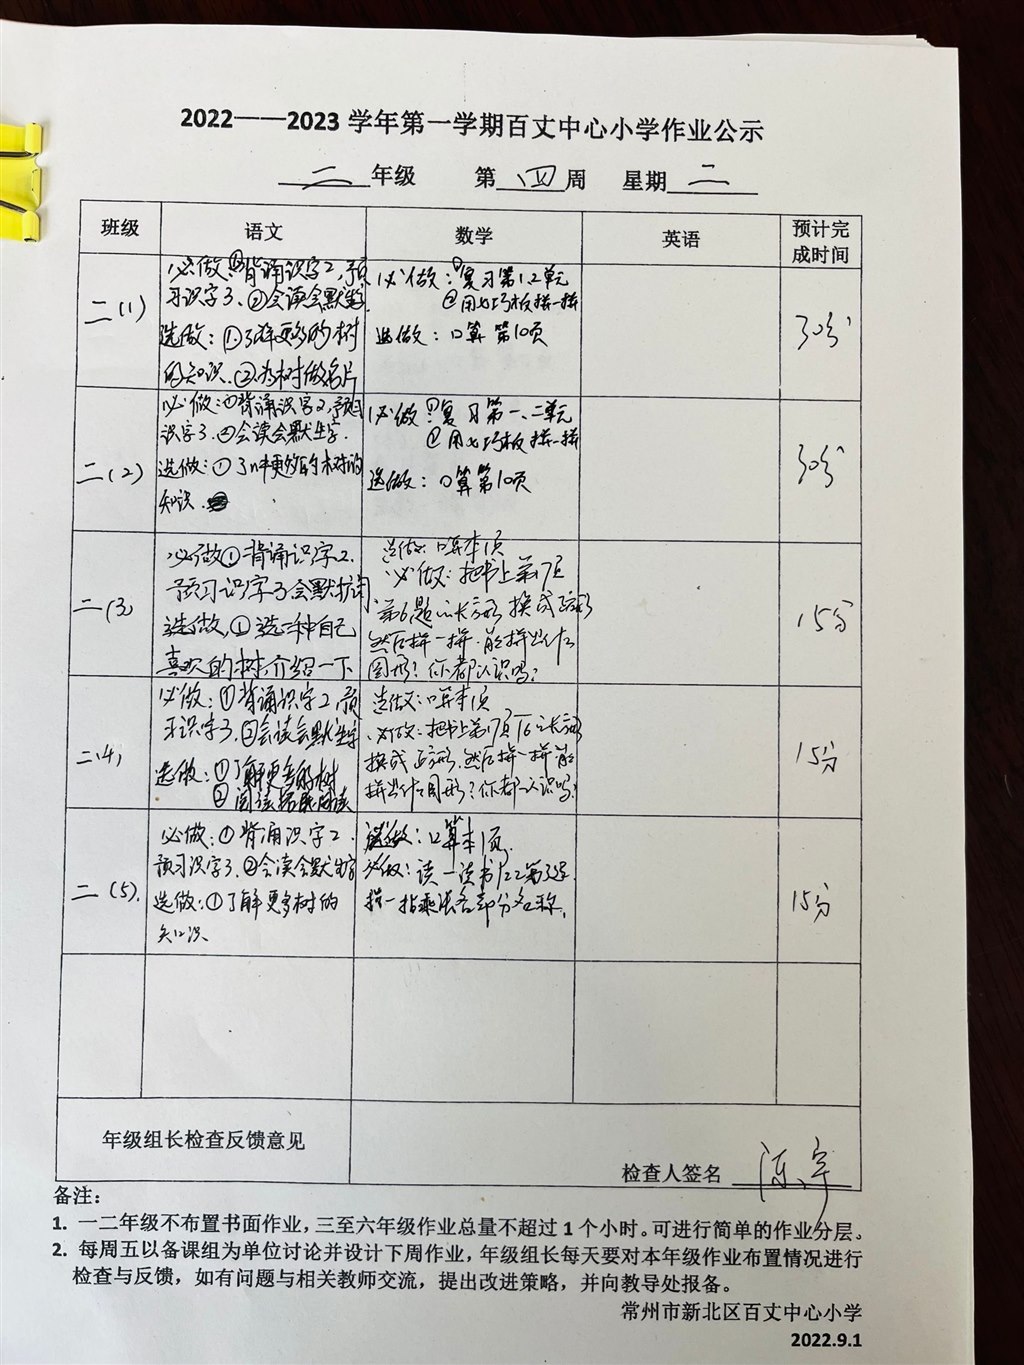 2022——2023 学年第一学期百丈中心小学作业公示
二 年级 第 四 周 星期 二
班级 语文 数学 英语 预计完成时间
二(1)
必做:①背诵识字2,预
习识字3.②会读会默生字
选做:①了解更多的树
的知识.②为树做名片
必做:①复习第1.2单元
②用七巧板拼一拼
选做:口算第10页
30分
二(2)
必做:①背诵识字2,预习
识字3.②会读会默生字.
选做:①了解更多的树的
知识.
必做:①复习第一、二单元
②用七巧板拼一拼
选做:口算第10页
30分
二(3)
必做①背诵识字2.
预习识字3会默
选做.①选一种自己
喜欢的树,介绍一下
选做:口算本1页
必做:把书上第17页
第6题 长方形换成
然后拼一拼.能拼出什么
图形?你都认识吗?
15分
二(4)
必做:①背诵识字2,预
习识字3.②会读会默生字
选做:①了解更多的树
②阅读
选做:口算本1页
必做:把书上第17页 6 长方形
换成正方形.然后拼一拼.能
拼出什么图形?你都认识吗?
15分
二(5).
必做:①背诵识字2.
预习识字3.②会读会默生字
选做:①了解更多树的
知识.
选做:口算本1页.
必做:读一读书P22第3题.
指一指乘法各部分名称.
15分
年级组长检查反馈意见
检查人签名 陈宇
备注:
1. 一二年级不布置书面作业,三至六年级作业总量不超过 1 个小时。可进行简单的作业分层。
2. 每周五以备课组为单位讨论并设计下周作业,年级组长每天要对本年级作业布置情况进行
检查与反馈,如有问题与相关教师交流,提出改进策略,并向教导处报备。
常州市新北区百丈中心小学
2022.9.1